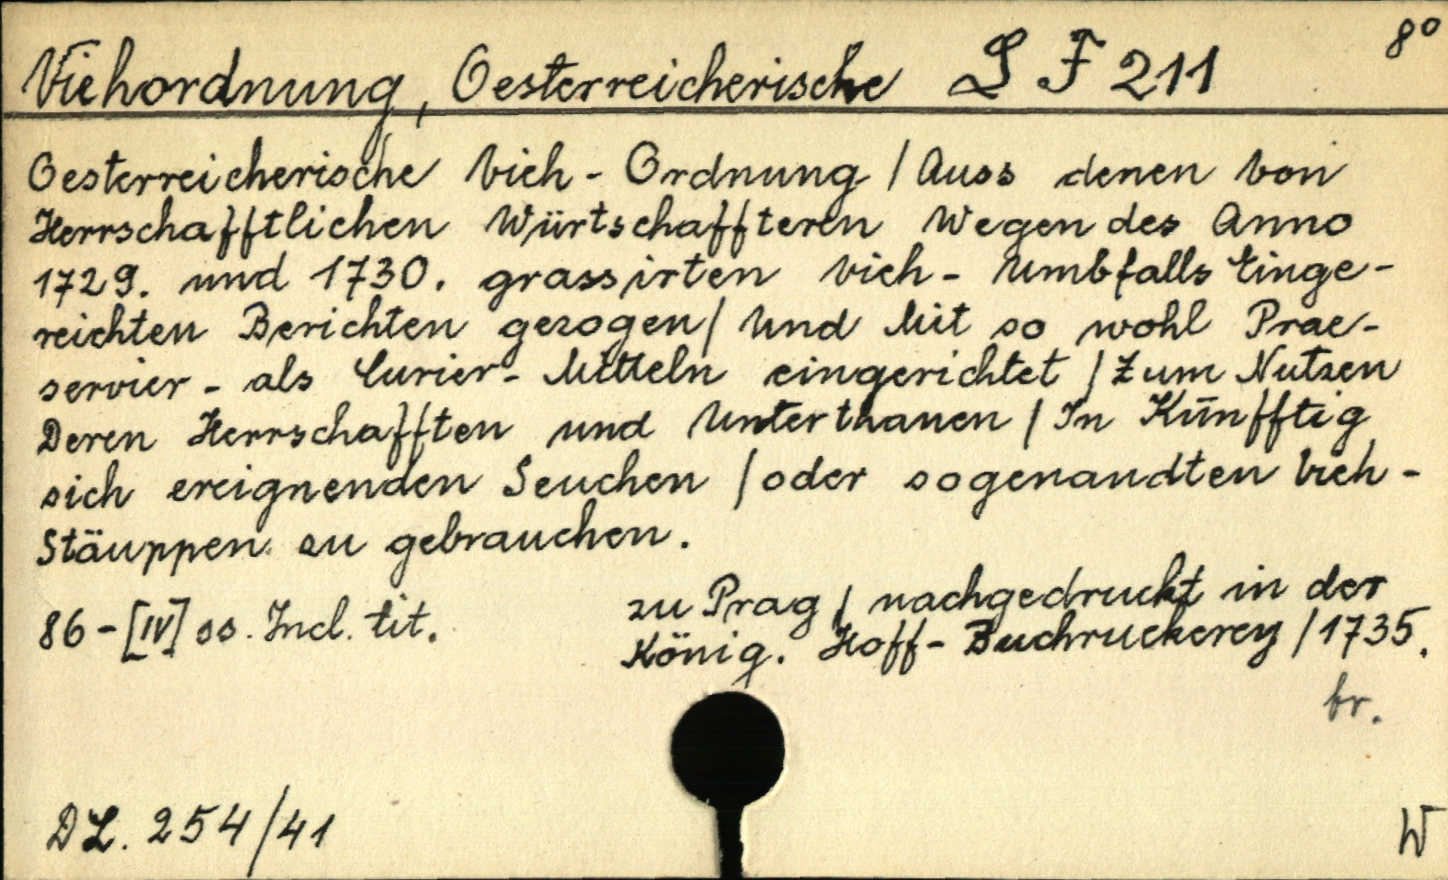 Viehordnung, Oesterreicherische S F 211 8°
Oesterreicherische Vieh- Ordnung / Auss denen von
Herrschafftlichen Würtschaffteren Wegen des Anno
1729. und 1730. grassirten vieh- Umbfalls Einge-
reichten Berichten gezogen / Und Mit so wohl Prae-
servier- als Curier- Mitteln eingerichtet / Zum Nutzen
Deren Herrschafften und Unterthanen / In Künfftig
sich ereignenden Seuchen / oder sogenandten Vieh-
Stäuppen zu gebrauchen.
86-[IV] ss. Incl. tit.
zu Prag / nachgedruckt in der
König. Hoff- Buchruckerey / 1735.
br.
DL. 254/41
W